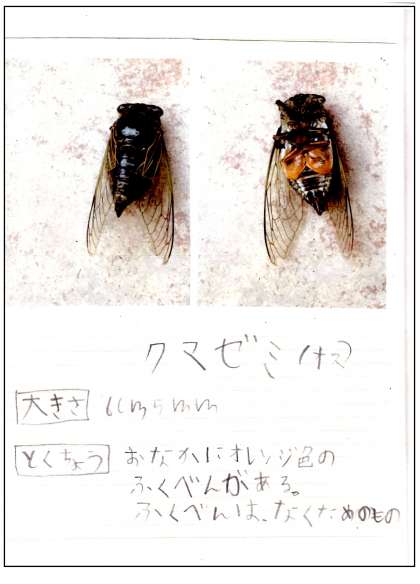 クマゼミ(オス)
大きさ 6cm5mm
とくちょう おなかにオレンジ色の
ふくべんがある。
ふくべんは、なくためのもの